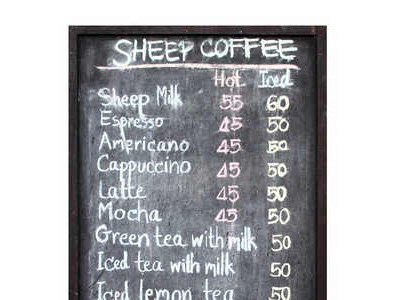 SHEEP COFFEE
Hot Iced
Sheep Milk 55 60
Espresso 45 50
Americano 45 50
Cappuccino 45 50
Latte 45 50
Mocha 45 50
Green tea with milk 50
Iced tea with milk 50
Iced lemon tea 50